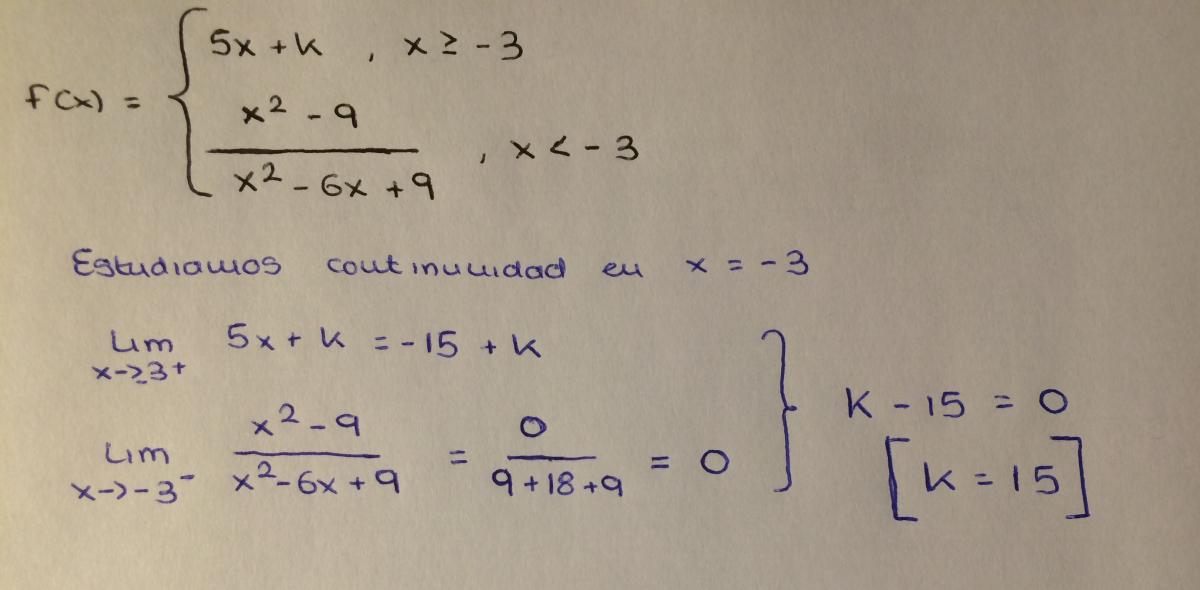 f(x) = { 5x + k , x ≥ -3
x² - 9 / x² - 6x + 9 , x < -3
Estudiamos continuidad en x = -3
Lim x->-3⁺ 5x + k = -15 + k
Lim x->-3⁻ x² - 9 / x² - 6x + 9 = 0 / 9 + 18 + 9 = 0 } K - 15 = 0
[k = 15]